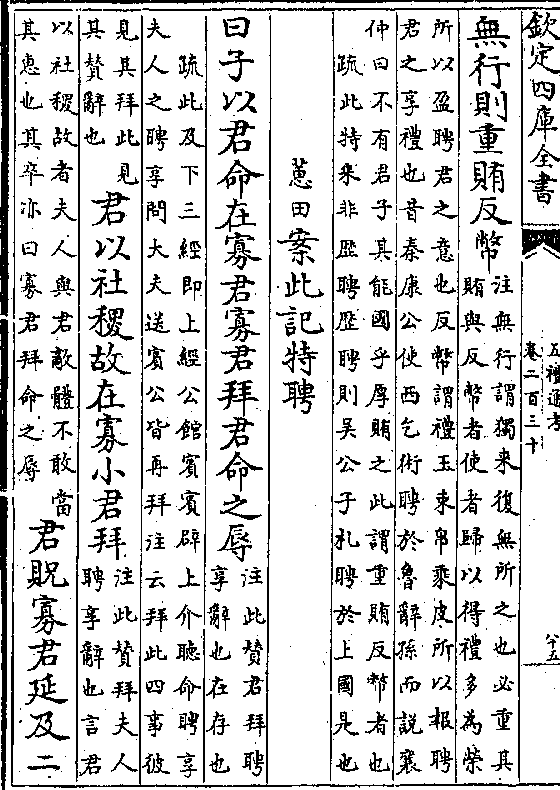 欽定四庫全書
五禮通考
卷二百三十
八十五
無行則重賄反幣
注無行謂獨来復無所之也必重其
賄與反幣者使者歸以得禮多為榮
所以盈聘君之意也反幣謂禮玉束帛乘皮所以報聘
君之享禮也昔秦康公使西乞術聘於魯辭孫而說襄
仲曰不有君子其能國乎厚賄之此謂重賄反幣者也
疏此特来非歴聘歴聘則吳公子札聘於上國是也
蕙田案此記特聘
曰子以君命在寡君寡君拜君命之辱
注此贊君拜聘
享辭也在存也
疏此及下三經即上經公館賓賓辟上介聽命聘享
夫人之聘享問大夫送賓公皆再拜注云拜此四事彼
見其拜此見
其贊辭也
君以社稷故在寡小君拜
注此贊拜夫人
聘享辭也言君
以社稷故者夫人與君敵體不敢當
其惠也其卒亦曰寡君拜命之辱
君貺寡君延及二